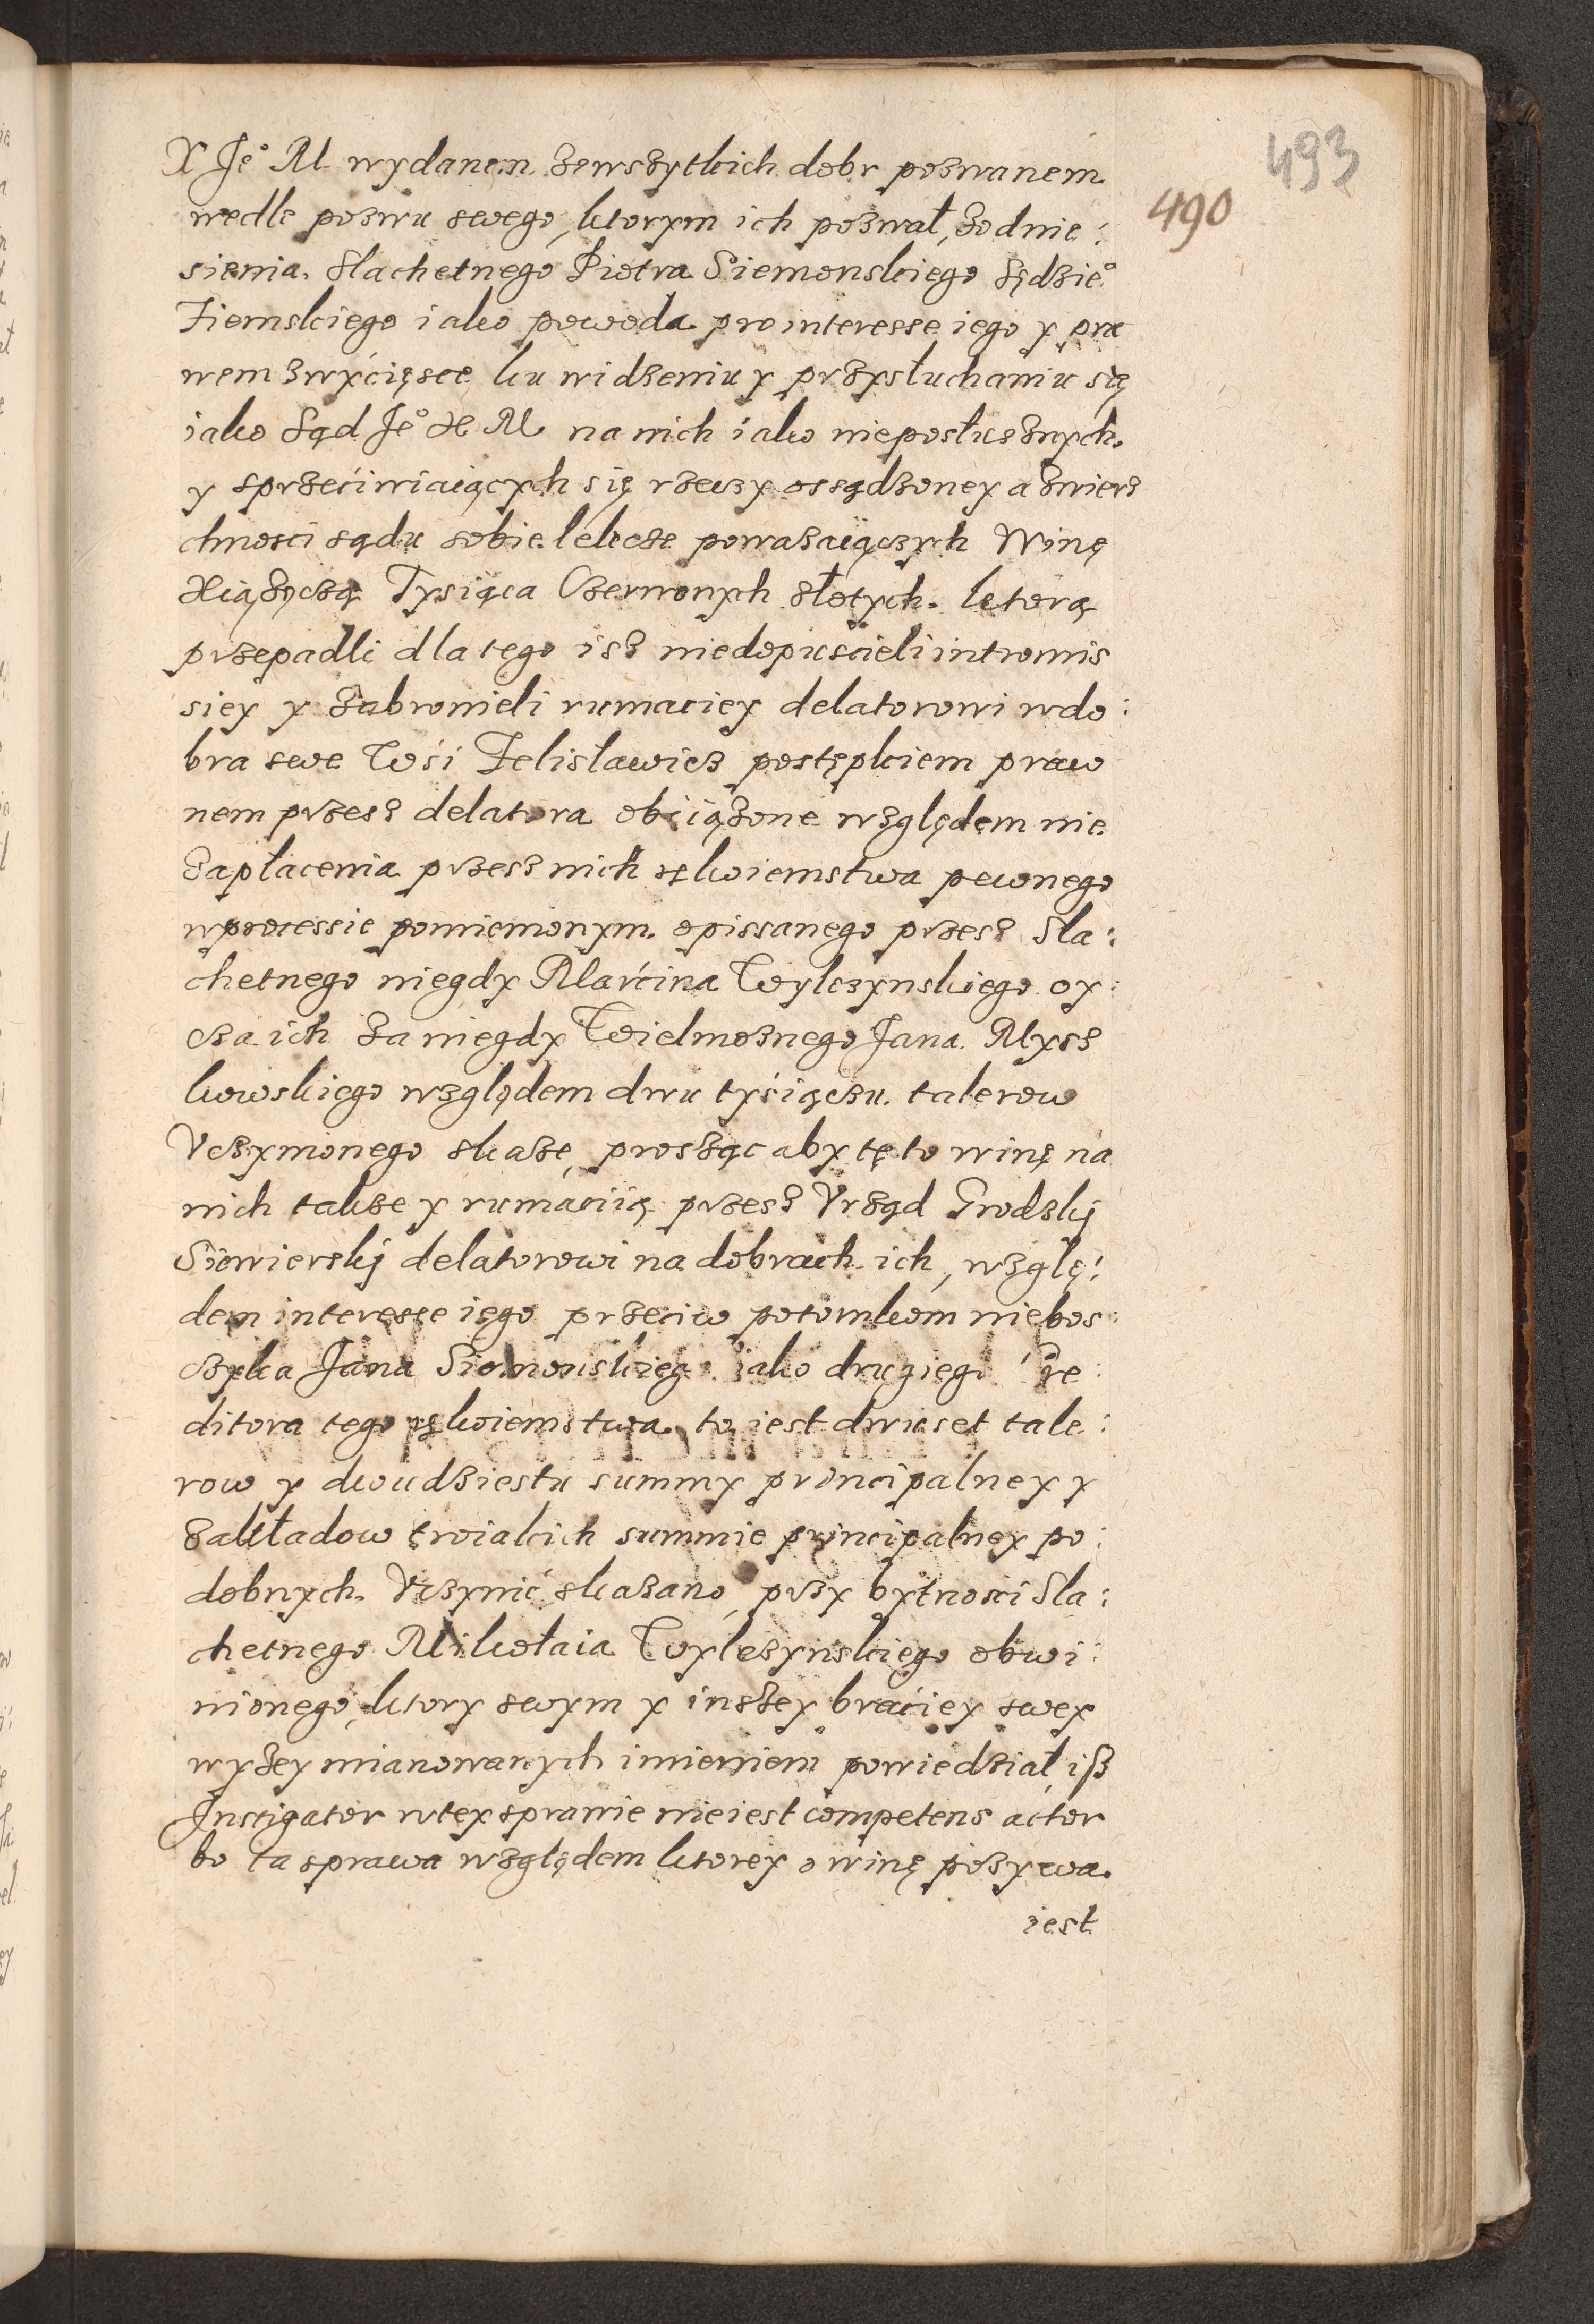 493
490
X Je° M wydanem zewszytkich dobr pozwanem
wedle pozwu swego, ktorym ich pozwał, zodnie:
sienia. Slachetnego Piotra Siemonskiego Sędzie°
Ziemskiego iako powoda pro interesse iego y pra
wem zwyćięsce ku widzeniu y przysłuchaniu się
iako Sąd Je° X M na nich iako nieposłusznych.
y sprzećiwiaiących się rzeczy ossądzoney a zwierz
chnosci sądu sobie lekcze powazaiączych Winę
Xiążęczą Tysiąca Czerwonych złotych. ktorą
przepadli dla tego isz niedopuscieli intromis
siey y zabronieli rumaciey delatorowi wdo:
bra swe Wśi Zelisławicz postępkiem praw
nem przesz delatora obciążone względem nie
zapłacenia przesz nich rękoiemstwa pewnego
wprocessie pomienionym. opissanego przesz Sla:
chetnego niegdy Marćina Wylczynskiego oy:
cza ich za niegdy Wielmoznego Jana. Mysz
kowskiego względem dwu tyśięczu. talerow
Vczynionego skaze, prosząc aby tę to winę na
nich takze y rumaciią przesz Vrząd Grodzkj
Siewierskj delatorowi na dobrach ich, wzglę:
dem interesse iego przeciw potomkom niebos:
czyka Jana Siemonskieg° iako drugiego Cre:
ditora tego rękoiemstwa to iest dwuset tale:
row y dwudziestu summy principalney y
zakładow troiakich summie principalney po:
dobnych. Vczynić skazano, przy bytnosci Sla:
chetnego Mikołaia Wylczynskiego obwi:
nionego, ktory swym y inszey braciey swey
wyzey mianowanych imieniem powiedział, iß
Instigator wtey sprawie nieiest competens actor
bo ta sprawa względem ktorey o winę pozywa.
iest